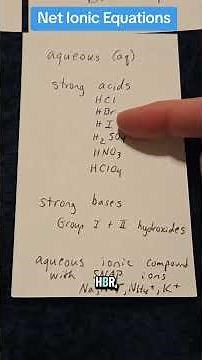 Net Ionic Equations
aqueous (aq)
strong acids
HCl
HBr
HI
H2SO4
HNO3
HClO4
strong bases
Group I + II hydroxides
aqueous ionic compound
with SNAP ions
HBR,
NH4+, K+